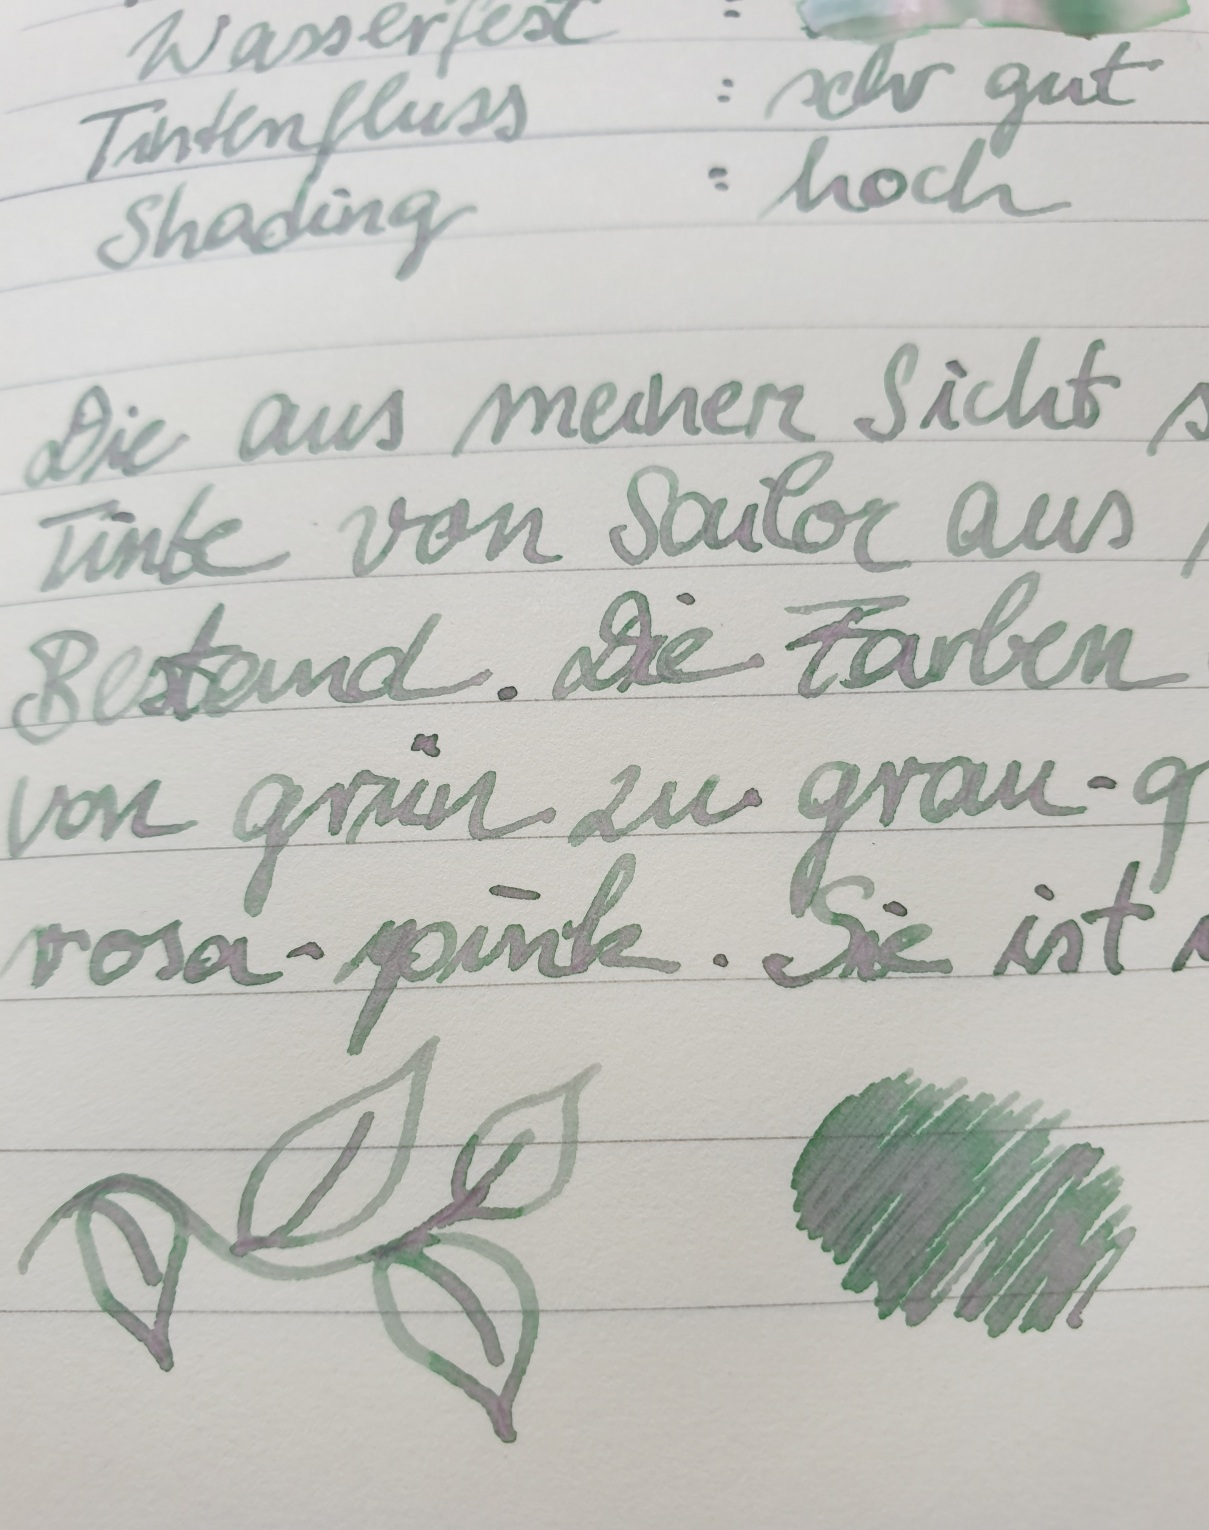 Wasserfest :
Tintenfluss : sehr gut
Shading : hoch
Die aus meiner Sicht
Tinte von Sailor aus
Bestand. Die Farben
von grün zu grau-g
rosa-pink. Sie ist